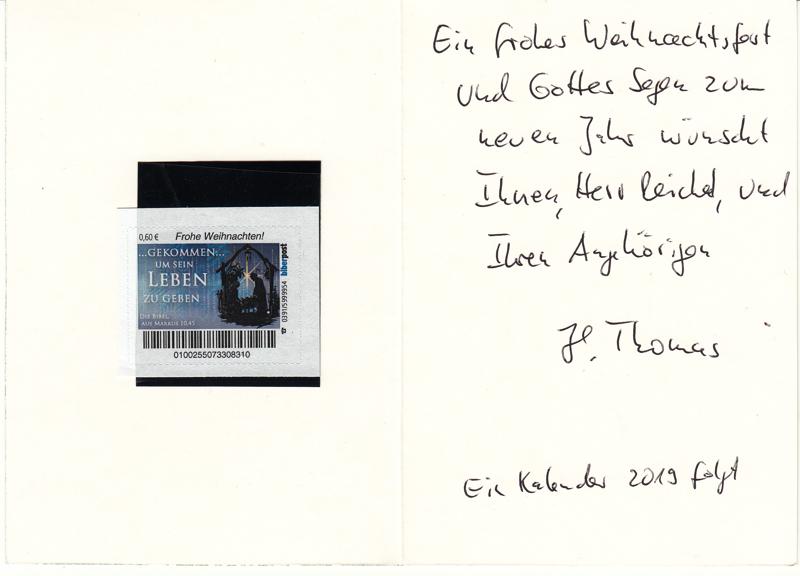 0,60 € Frohe Weihnachten!
...GEKOMMEN...
UM SEIN
LEBEN
ZU GEBEN
DIE BIBEL,
AUS MARKUS 10,45
biberpost
☎ 0391/5999954
0100255073308310
Ein frohes Weihnachtsfest
und Gottes Segen zum
neuen Jahr wünscht
Ihnen, Herr Reichel, und
Ihren Angehörigen
H. Thomas
Ein Kalender 2019 folgt